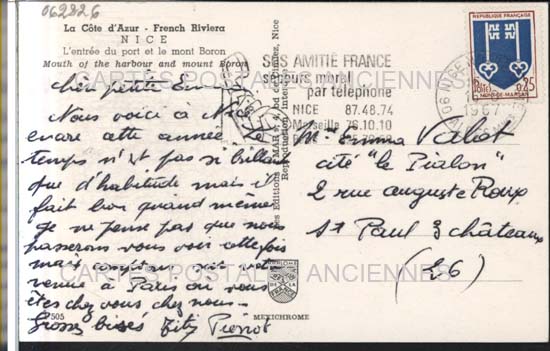 062826
La Côte d'Azur - French Riviera
NICE
L'entrée du port et le mont Boron
Mouth of the harbour and mount Boron
Chère petite Em
Nous voici à Nice
encore cette année
temps n'est pas si brillant
que d'habitude mais il
fait bon quand même
je ne pense pas que nous
passerons vous voir cette fois
mais
venue à Paris où vous
êtes chez vous chez nous
Grosses bises Titi Pierrot
505
Les Editions "MAR", 4, bd de Nice
Reproduction interdite
METICHROME
DIPLOME
DE LA
FRANCE
SOS AMITIE FRANCE
secours moral
par téléphone
NICE 87.48.74
Marseille 76.10.10
REPUBLIQUE FRANÇAISE
POSTES 0,25
MONT-DE-MARSAN
NICE
1967
Mme Emma Valiot
cité "le Pialon"
2 rue Auguste Roux
St Paul 3 châteaux
(26)
CARTES POSTALES ANCIENNES
CARTES POSTALES ANCIENNES